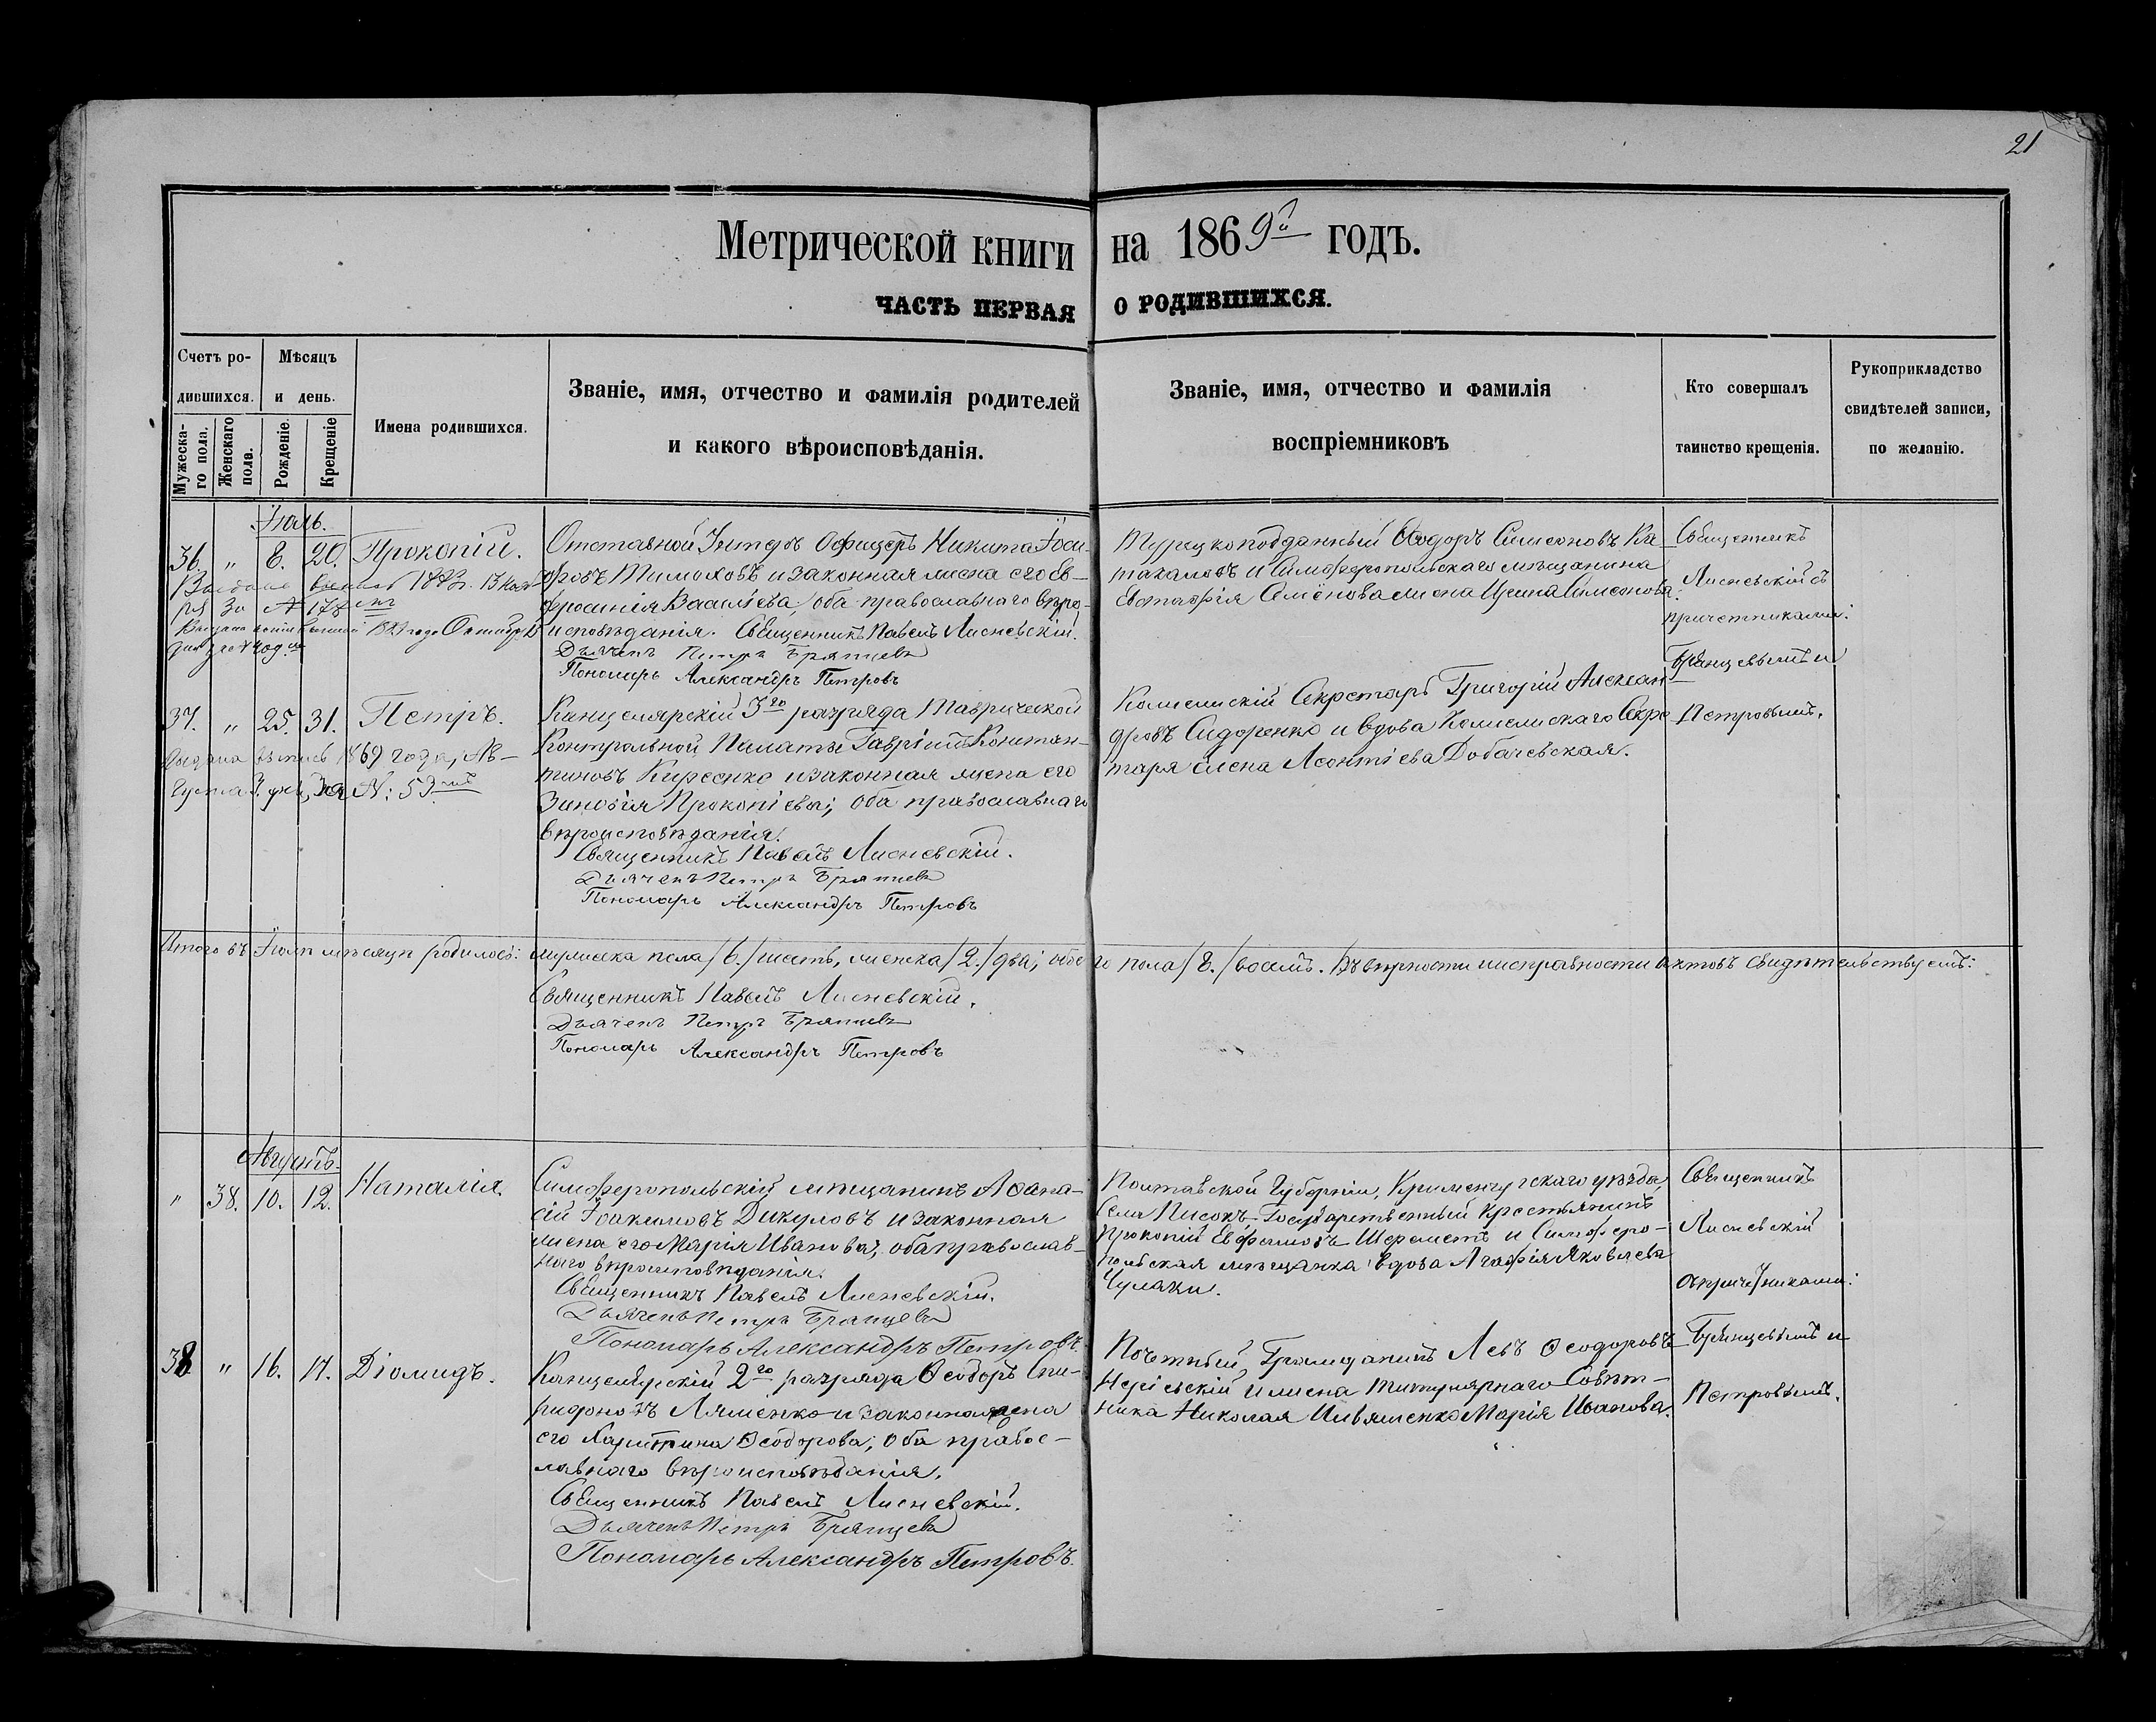 21
Метрической книги на 1869й годъ.
ЧАСТЬ ПЕРВАЯ О РОДИВШИХСЯ.
Счетъ ро-
дившихся.
Мѣсяцъ
и день.
Мужеска-
го пола.
Женскаго
пола.
Рожденіе.
Крещеніе
Имена родившихся.
Званіе, имя, отчество и фамилія родителей
и какого вѣроисповѣданія.
Званіе, имя, отчество и фамилія
воспріемниковъ
Кто совершалъ
таинство крещенія.
Рукоприкладство
свидѣтелей записи,
по желанію.
Іюль.
36. " 8. 20. Прокопій.
Отставной Унтеръ Офицеръ Никита
Тимоховъ и законная жена его Ев-
фросинія Васильева, оба православнаго вѣро-
исповѣданія. Священникъ Павелъ Лисневскій.
Дьячекъ Петръ Брянцевъ
Пономарь Александръ Петровъ
Турецкоподданный Ѳеодоръ Симеоновъ Ка-
и Симферопольскаго мѣщанина
Евстафія Семенова жена Ирина Симеонова.
Священникъ
Лисневскій съ
причетниками:
Брянцевымъ и
Петровымъ.
37. " 25. 31. Петръ.
Выдана выпись 1869 года, Ав-
густа 3 дня, за №: 53мъ
Канцелярскій 3го разряда Таврической
Контрольной Палаты Гавріилъ Констан-
тиновъ Киреенко и законная жена его
Зиновія Прокопіева; оба православнаго
вѣроисповѣданія.
Священникъ Павелъ Лисневскій.
Дьячекъ Петръ Брянцевъ
Пономарь Александръ Петровъ
Коллежскій Секретарь Григорій Алексан-
дровъ Сидоренко и вдова Коллежскаго Секре-
таря Елена Леонтіева Добачевская.
Итого въ Іюлѣ мѣсяцѣ родилось: мужеска пола /6./ шесть, женска /2./ два; обоего пола /8./ восемь. Въ вѣрности и исправности актовъ свидѣтельствуемъ:
Священникъ Павелъ Лисневскій.
Дьячекъ Петръ Брянцевъ
Пономарь Александръ Петровъ
Августъ.
" 38. 10. 12. Наталія.
Симферопольскій мѣщанинъ Аѳана-
сій Іоакимовъ Дикуловъ и законная
жена его Марія Иванова; оба православ-
наго вѣроисповѣданія.
Священникъ Павелъ Лисневскій.
Дьячекъ Петръ Брянцевъ
Пономарь Александръ Петровъ.
Полтавской Губерніи, Кременчугскаго уѣзда,
Села Писокъ Государственный крестьянинъ
Прокопій Евфимовъ Шереметъ и Симферо-
польская мѣщанка вдова Агафія Яковлева
Чулаки.
Священникъ
Лисневскій
съ причетниками:
Брянцевымъ и
Петровымъ.
38 " 16. 17. Діомидъ.
Канцелярскій 2го разряда Ѳеодоръ Спи-
ридоновъ Ляшенко и законная жена
его Харитина Ѳеодорова; оба правос-
лавнаго вѣроисповѣданія.
Священникъ Павелъ Лисневскій.
Дьячекъ Петръ Брянцевъ
Пономарь Александръ Петровъ.
Почетный Гражданинъ Левъ Ѳеодоровъ
и жена Титулярнаго Совѣт-
ника Николая Ивляшенко Марія Иванова.